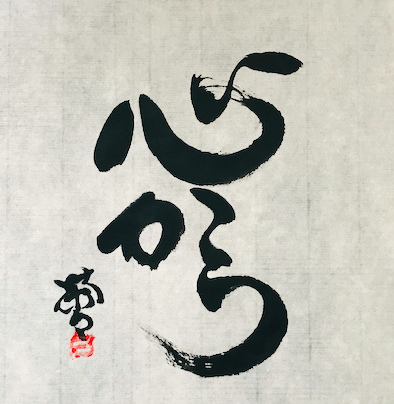 心
から